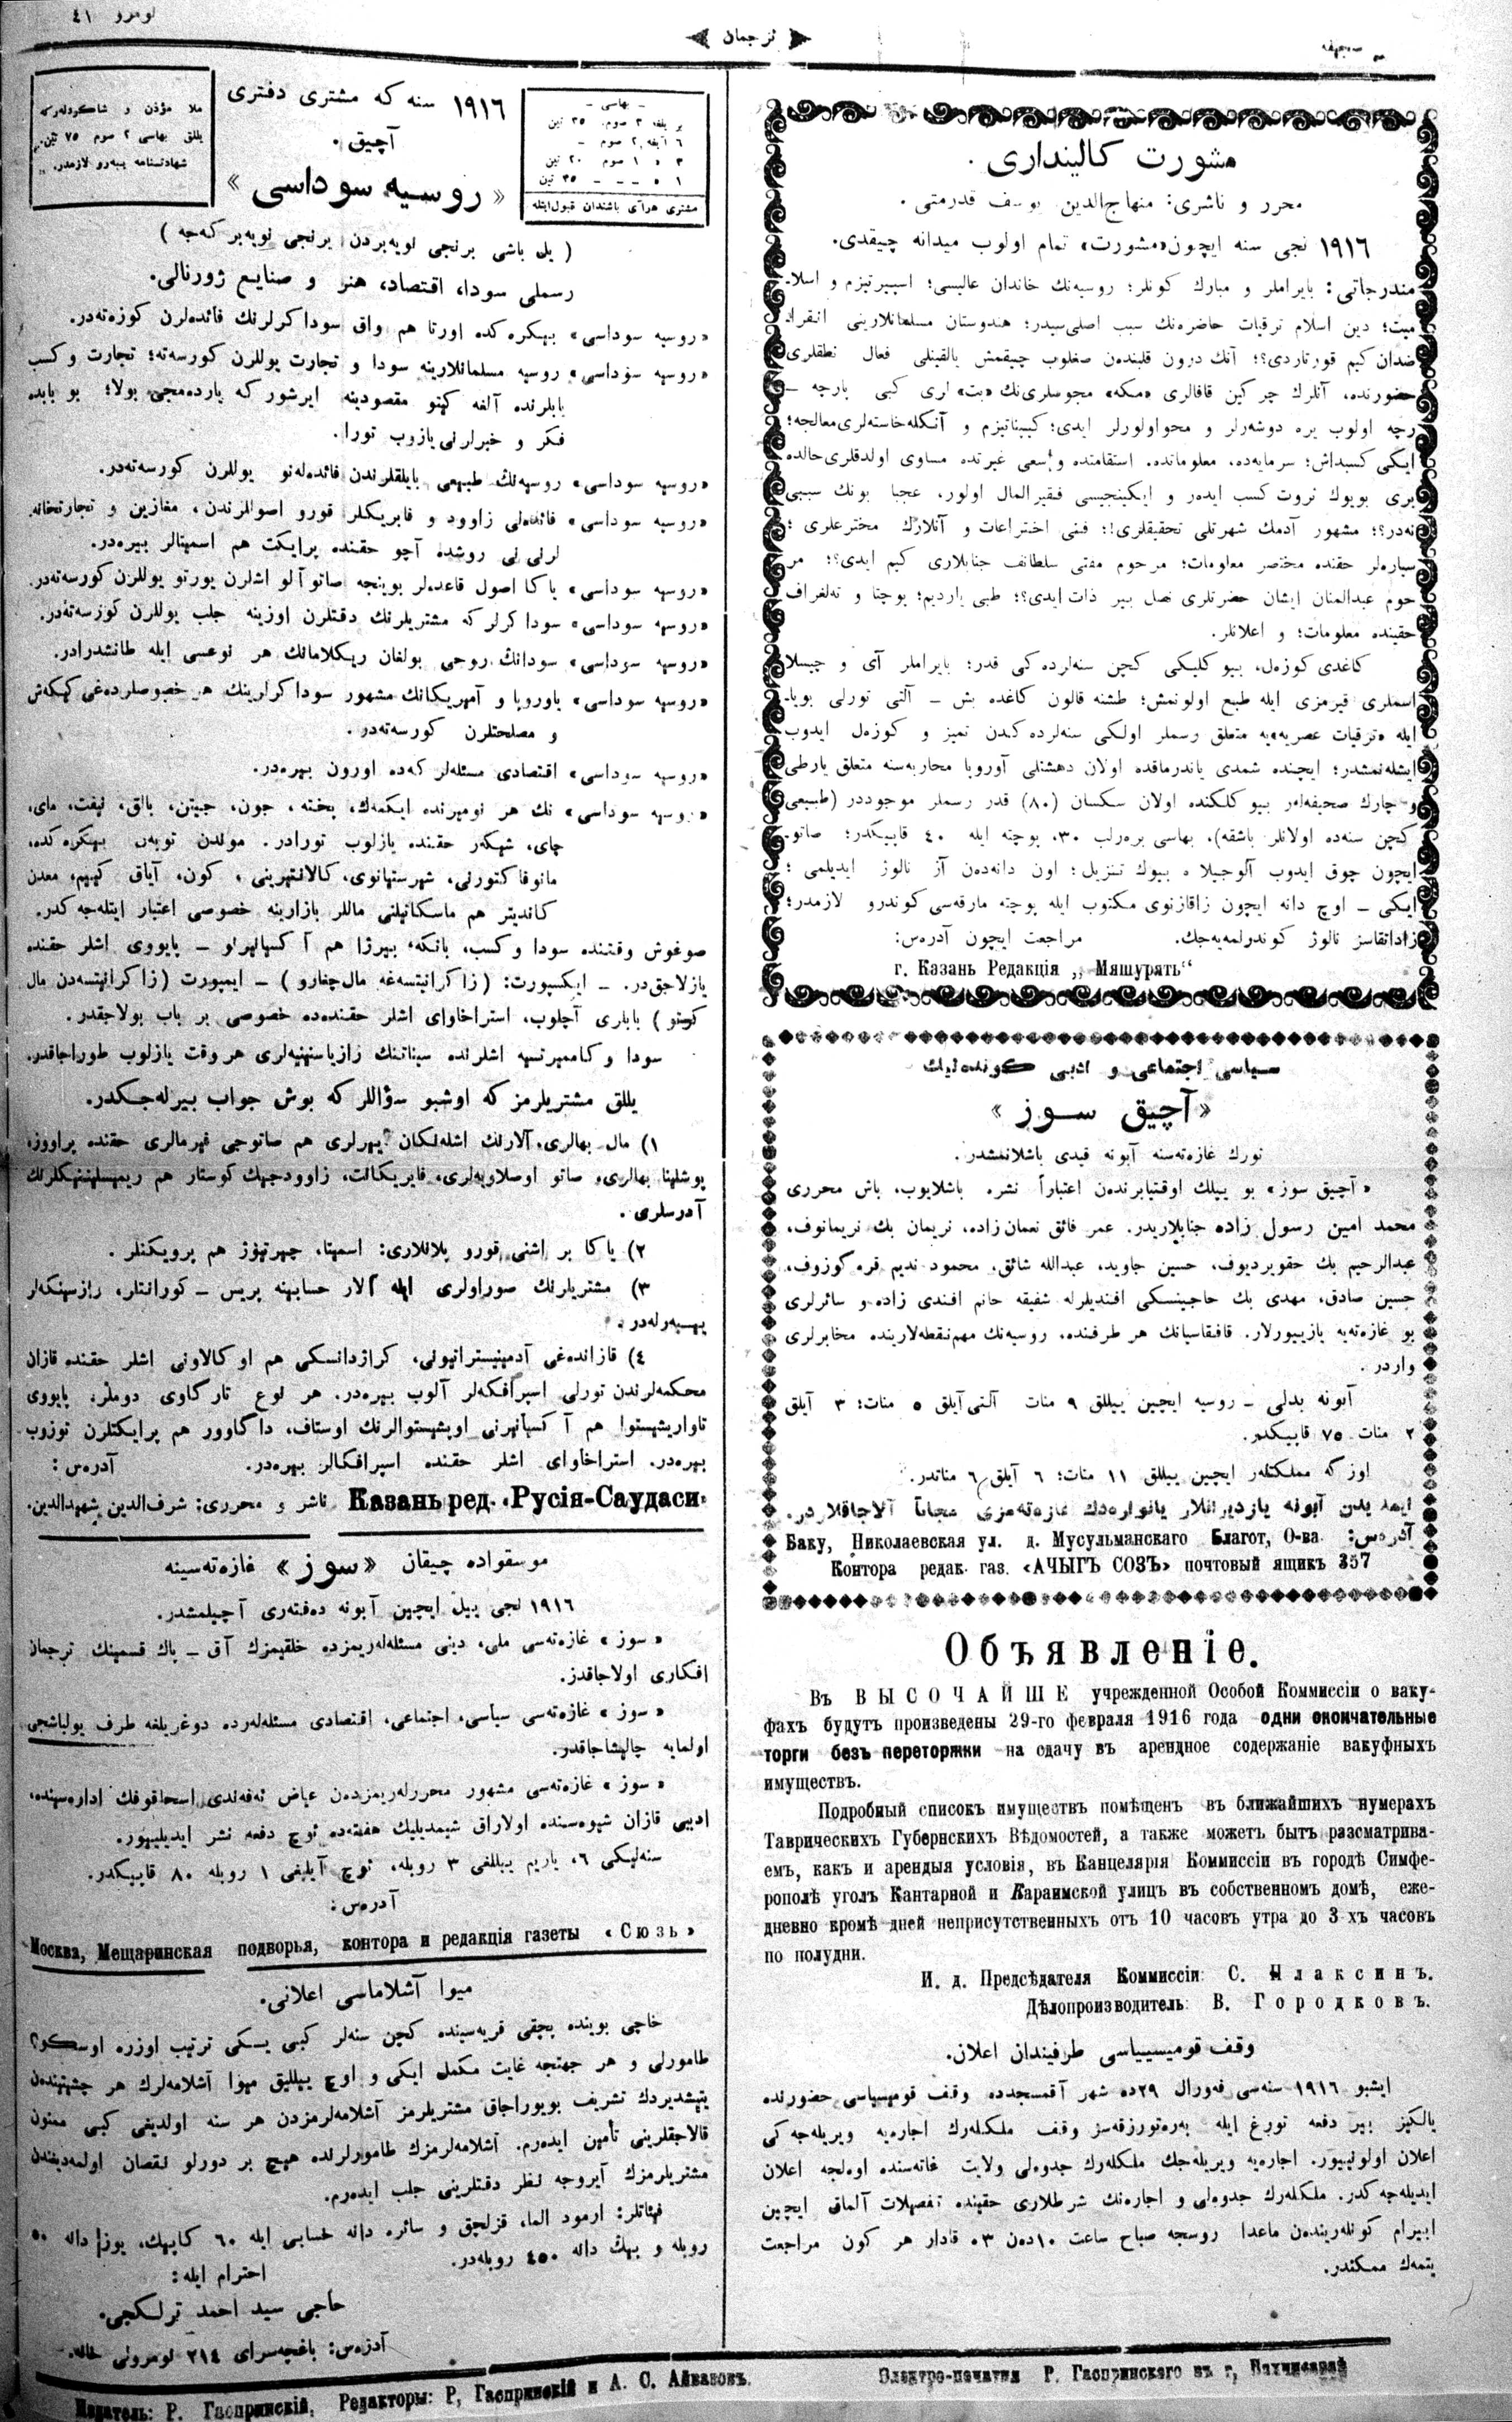 نومرو ٤١
ترجمان
صحیفه
مشورت كالینداری.
محرر و ناشری: منهاج‌الدین یوسف قدرمتی.
١٩١٦ نجی سنه ایچون «مشورت» تمام اولوب میدانه چیقدی.
مندرجاتی: بایراملر و مبارك كونلر؛ روسیه‌نك خاندان عالیسی؛ اسپیرتیزم و اسلا-
میت؛ دین اسلام ترقیات حاضره‌نك سبب اصلی‌سیدر؛ هندوستان مسلمانلارینی انقرا-
ضدان كیم قورتاردی؟؛ آنك درون قلبندن
حضورنده، آنلرك چركین قافالری «مكه» مجوسلری‌نك «بت» لری كبی پارچه -
رچه اولوب یره دوشه‌رلر و محو اولورلر ایدی؛
ایكی كسبداش؛ سرمایه‌ده، معلوماتده، استقامتده و سعی غیرتده مساوی اولدقلری حالده
بری بویوك ثروت كسب ایده‌ر و ایكینجیسی فقیر المال اولور، عجبا بونك سببی
نه‌در؟؛ مشهور آدمك شهرتلی تحقیقلری!؛ فنی اختراعات و آنلارك مخترعلری؛
سیاره‌لر حقنده مختصر معلومات؛ مرحوم مفتی سلطانف جنابلاری كیم ایدی؟؛ مر
حوم عبدالمنان ایشان حضرتلری نصل بیر ذات ایدی؟؛ طبی یاردیم؛ پوچتا و تەلغراف
حقینده معلومات؛ و اعلانلر.
كاغدی كوزەل، بیوكلیكی كچن سنه‌لرده‌كی قدر؛ بایراملر آی و چیسلا
اسملری قیرمزی ایله طبع اولونمش؛ طشنه قالون كاغده بش - آلتی تورلی بویا-
ایله «ترقیات عصریه»یه متعلق رسملر اولكی سنه‌لرده‌كندن تمیز و كوزەل ایدوب
ایشله‌نمشدر؛ ایچنده شمدی یاندرماقده اولان دهشتلی آوروپا محاربه‌سنه متعلق یارطی
و چارك صحیفه‌لر بیوكلكنده اولان سكسان (٨٠) قدر رسملر موجوددر (طبیعی
كچن سنه‌ده اولانلر باشقه). بهاسی بره‌رلب ٣٠، پوچته ایله ٤٠ قاپیكدر؛ صاتو-
ایچون چوق ایدوب آلوچیلاره بیوك تنزیل؛ اون دانه‌دەن آز نالوژ ایدیلمی؛
ایكی - اوچ دانه ایچون زاقازنوی مكتوب ایله پوچته مارقه‌سی كوندرو لازمدر؛
زاداتقاسز نالوژ كوندرلمه‌یه‌جك. مراجعت ایچون آدرەس:
г. Казань Редакція „Мяшурятъ“
سیاسی اجتماعی و ادبی كونده‌لیك
«آچیق سوز»
تورك غازه‌ته‌سنه آبونه قیدی باشلانمشدر.
«آچیق سوز» بو ییلك اوقتیابرندەن اعتباراً نشره باشلایوب، باش محرری
محمد امین رسول زاده جنابلاریدر. عمر فائق نعمان‌زاده، نریمان بك نریمانوف،
عبدالرحیم بك حقویردیوف، حسین جاوید، عبدالله شائق، محمود ندیم قره‌كوزوف،
حسین صادق، مهدی بك حاجینسكی افندیلرله شفیقه خانم افندی زاده و سائرلری
بو غازه‌ته‌یه یازییورلار. قافقاسیانك هر طرفنده، روسیه‌نك مهم نقطه‌لارینده مخابرلری
واردر.
آبونه بدلی - روسیه ایچین ییللق ٩ منات آلتی آیلق ٥ منات؛ ٣ آیلق
٢ منات ٧٥ قاپیكدر.
اوزكه مملكتلەر ایچین ییللق ١١ منات؛ ٦ آیلق ٦ مناتدر.
ایمدیدن آبونه یازدیرانلار یانواره‌دك غازه‌ته‌مزی مجاناً آلاجاقلاردر.
آدرەس: Баку, Николаевская ул. д. Мусульманскаго Благот, О-ва
Контора редак. газ. «АЧЫГЪ СОЗЪ» почтовый ящикъ 357
Объявленіе.
Въ ВЫСОЧАЙШЕ учрежденной Особой Коммиссіи о ваку-
фахъ будутъ произведены 29-го февраля 1916 года одни окончательные
торги безъ переторжки на сдачу въ арендное содержаніе вакуфныхъ
имуществъ.
Подробный списокъ имуществъ помѣщенъ въ ближайшихъ нумерахъ
Таврическихъ Губернскихъ Вѣдомостей, а также можетъ быть разсматрива-
емъ, какъ и арендыя условія, въ Канцелярія Коммиссіи въ городѣ Симфе-
рополѣ уголъ Кантарной и Караимской улицъ въ собственномъ домѣ, еже-
дневно кромѣ дней неприсутственныхъ отъ 10 часовъ утра до 3-хъ часовъ
по полудни.
И. д. Предсѣдателя Коммиссіи: С. Плаксинъ.
Дѣлопроизводитель: В. Городковъ.
وقف قومیسییاسی طرفیندان اعلان.
ایشبو ١٩١٦ سنه‌سی فەورال ٢٩ده شهر آقمسجدده وقف قومیسیاسی حضورنده
یالكیز بیر دفعه تورغ ایله پەره‌تورژقه‌سز وقف ملكلەرك اجاره‌یه ویریله‌جه‌كی
اعلان اولونییور. اجاره‌یه ویریله‌جك ملكلەرك جدوه‌لی ولایت غاته‌سنده اوه‌لجه اعلان
ایدیله‌جه‌كدر. ملكلەرك جدوه‌لی و اجاره‌نك شرطلاری حقینده تفصیلات آلماق ایچین
ایبرام كونلەریندەن ماعدا روسجه صباح ساعت ١٠دەن ٣ه قادار هر كون مراجعت
یتمه‌ك ممكندر.
- بهاسی -
بر یلغه ٣ صوم. ٣٥ تین
٦ آیغه ٢ صوم -
٣ » ١ صوم ٢٠ تین
١ » - - - ٣٥ تین
مشتری هرآی باشندان قبول ایتله
١٩١٦ سنه‌گه مشتری دفتری
آچیق.
«روسیه سوداسی»
ملا مؤذن و شاكردلەرگه
یللق بهاسی ٢ صوم ٧٥ تین.
شهادتنامه ییبه‌رو لازمدر.
(یل باشی برنجی نویەبردن برنجی نویەبرگه‌چه)
رسملی سودا، اقتصاد، هنر و صنایع ژورنالی.
«روسیه سوداسی» بیگره‌كده اورتا هم واق سوداگرلرنك فائده‌لرن كوزه‌ته‌در.
«روسیه سوداسی» روسیه مسلمانلارینه سودا و تجارت یوللرن كورسه‌ته؛ تجارت و كسب
بابلرنده آلغه كیتو مقصودینه ایرشورگه یارده‌مچی بولا؛ بو بابده
فكر و خبرلرنی یازوب تورا.
«روسیه سوداسی» روسیه‌نك طبیعی بایلقلرندن فائده‌له‌نو یوللرن كورسه‌ته‌در.
«روسیه سوداسی» فائده‌لی زاوود و فابریكلر قورو اصوللرندن، مغازین و تجارتخانه
لرنی نی روشده آچو حقنده پرایكت هم اسمیتالر بیره‌در.
«روسیه سوداسی» یاكا اصول قاعده‌لر بوینچه صاتو آلو اشلرن یورتو یوللرن كورسه‌ته‌در.
«روسیه سوداسی» سوداگرلرگه مشتریلرنك دقتلرن اوزینه جلب یوللرن كورسه‌ته‌در.
«روسیه سوداسی» سودانڭ روحی بولغان ریكلامانك هر نوعسی ایله طانشدرادر.
«روسیه سوداسی» یاوروپا و آمیریكانك مشهور سوداگرلرینك هر خصوصلرده‌غی كیكه‌ش
و مصلحتلرن كورسه‌ته‌در.
«روسیه سوداسی» اقتصادی مسئله‌لرگه‌ده اورون بیره‌در.
«روسیه سوداسی» نك هر نومیرنده ایكمه‌ك، پخته، جون، جیتن، بالق، نیفت، مای،
چای، شیكه‌ر حقنده یازلوب تورادر. موندن توبه‌ن بیگره‌كده،
مانوفاكتورنی، كالانتیرینی، كون، آیاق كییم، معدن
كاندیتر هم ماسكاتیلنی ماللر بازارینه خصوصی اعتبار ایتله‌جه‌كدر.
صوغوش وقتنده سودا و كسب، بانكه، بیرژا هم
یازلاجق‌در. - ایكسپورت: (زاگرانیتسه‌غه مال چغارو) - ایمپورت (زاگرانیتسه‌دن مال
كرتو) بابلری آچلوب، استراخاوای اشلر حقنده‌ده خصوصی بر باب بولاجقدر.
سودا و كاممیرتسیه اشلرنده سیناتنك رازیاسنینیه‌لری هروقت یازلوب طوراجاقدر.
یللق مشتریلرمزگه اوشبو سؤاللرگه بوش جواب بیرله‌جكدر.
١) مال بهالری، آلارنك اشله‌نگان یرلری هم صاتوچی فیرمالری حقنده پراووز،
پوشلینا بهالری، صاتو اوصلاویه‌لری، فابریكانت، زاوودچیك كوستار هم ریمیسلیننیكلرنك
آدرسلری.
٢) یاكا بر اشنی قورو پلانلاری: اسمیتا، چیرتیوژ هم پرویكتلر.
٣) مشتریلرنك صوراولری ایله آلار حسابینه پریس - كورانتلر،
ییبه‌رله‌در.
٤) قازانده‌غی آدمینیستراتیونی، گراژدانسكی هم اوگالاونی اشلر حقنده قازان
محكمه‌لرندن تورلی اسپرافكه‌لر آلوب بیره‌در. هر نوع تارگاوی دوملر، پایووی
تاواریشیستوا هم آكسیانیرنی اوبشیستوالرنك اوستاف، داگاوور هم پرایكتلرن توزوب
بیره‌در. استراخاوای اشلر حقنده اسپرافكالر بیره‌در. آدرەس:
Казань ред. «Русія-Саудаси» ناشر و محرری: شرف‌الدین شهیدالدین.
موسقواده چیقان «سوز» غازه‌ته‌سینه
١٩١٦ نجی ییل ایچین آبونه ده‌فته‌ری آچیلمشدر.
«سوز» غازه‌ته‌سی ملی، دینی مسئله‌لەریمزده خلقیمزك آق - پاك قسمینك ترجمان
افكاری اولاجاقدر.
«سوز» غازه‌ته‌سی سیاسی، اجتماعی، اقتصادی مسئله‌لەرده دوغریلغه طرف یولباشچی
اولمایه چالیشاجاقدر.
«سوز» غازه‌ته‌سی مشهور محررلەریمزدەن عیاض ئه‌فه‌ندی اسحاقوفك اداره‌سینده،
ادبی قازان شیوه‌سنده اولاراق شیمدیلیك هفته‌ده ئوچ دفعه نشر ایدیلییور.
سنه‌لیكی ٦، یاریم ییللغی ٣ روبله، ئوچ آیلیغی ١ روبله ٨٠ قاپیكدر.
آدرەس:
Москва, Мещаринская подворья, контора и редакція газеты «Сюзь»
میوا آشلاماسی اعلانی.
خاچی بوینده بچقی قریه‌سینده كچن سنه‌لر كبی یسكی ترتیب اوزره
طامورلی و هر جهتجه غایت مكمل ایكی و اوچ ییللیق میوا آشلامه‌لرك هر چشیتیندەن
یتیشدیردك تشریف بویوراجاق مشتریلرمز آشلامه‌لرمزدن هر سنه اولدیغی كبی ممنون
قالاجقلرینی تأمین ایده‌رم. آشلامه‌لرمزك طامورلرنده هیچ بر دورلو نقصان اولمه‌دیغندن
مشتریلرمزك آیروجه نظر دقتلرینی جلب ایده‌رم.
فیئاتلر: ارمود الما، قزلجق و سائره دانه حسابی ایله ٦٠ كاپیك، یوز دانه ٥٠
روبله و بیڭ دانه ٤٥٠ روبله‌در.
احترام ایله:
حاجی سید احمد ترلكچی.
آدرەس: باغچه‌سرای ٢١٤ نومرولی خانه.
Издатель: Р. Гаспринскій. Редакторы: Р, Гаспринскій и А. С. Айвазовъ.
Электро-печатня Р. Гаспринскаго въ г, Бахчисараѣ